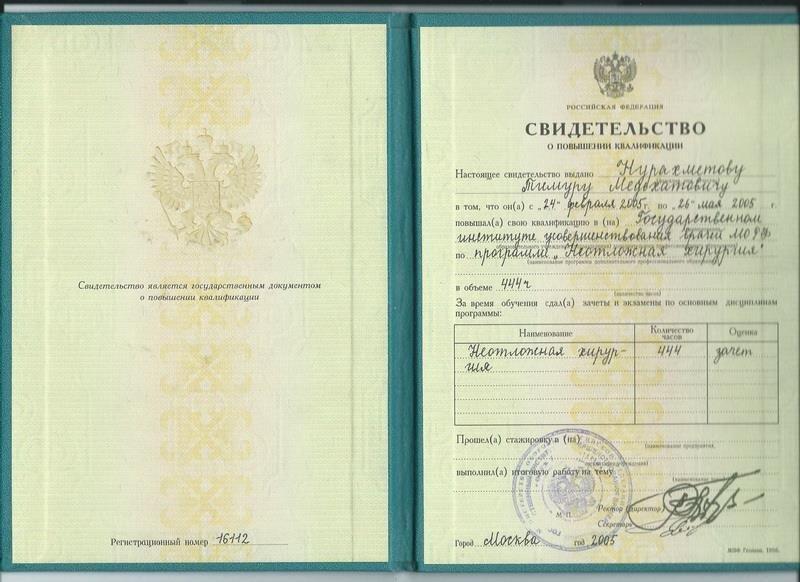 Свидетельство является государственным документом
о повышении квалификации
Регистрационный номер 16112
РОССИЙСКАЯ ФЕДЕРАЦИЯ
СВИДЕТЕЛЬСТВО
О ПОВЫШЕНИИ КВАЛИФИКАЦИИ
Настоящее свидетельство выдано Нурахметову
Тимуру Медохатовичу
в том, что он(а) с „24" февраля 2005 г. по „26" мая 2005 г.
повышал(а) свою квалификацию в (на) Государственном
институте усовершенствования врачей МО РФ
по программе „Неотложная хирургия"
(наименование программы дополнительного профессионального образования)
в объеме 444ч
(количество часов)
За время обучения сдал(а) зачеты и экзамены по основным дисциплинам
программы:
Наименование Количество часов Оценка
Неотложная хирур- 444 зачет
гия
Прошел(а) стажировку в (на)
(наименование предприятия,
выполнил(а) итоговую работу на тему
(наименование темы)
М. П.
Ректор (директор)
Секретарь
Город Москва год 2005